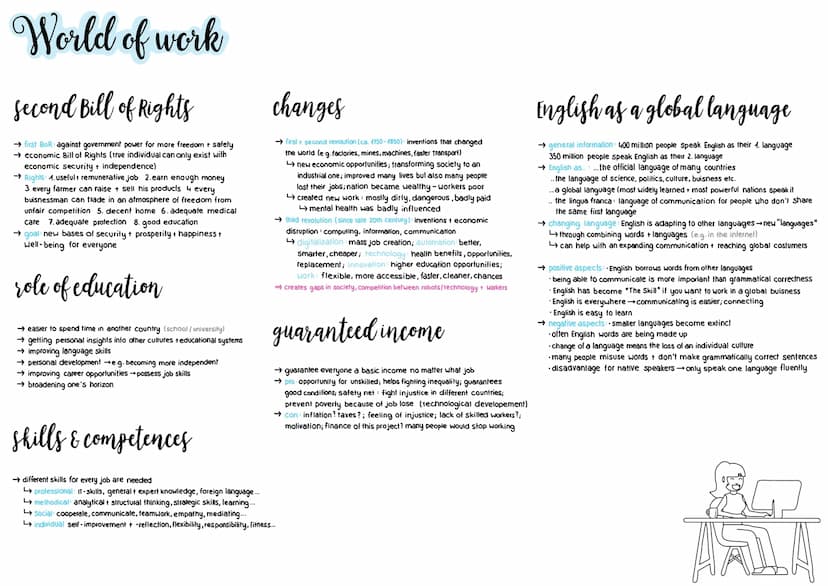 World of work
second Bill of Rights
→ first BoR: against government power for more freedom + safety
→ economic Bill of Rights (true individual can only exist with
economic security + independence)
→ Rights: 1. useful + remunerative job 2. earn enough money
3 every farmer can raise + sell his products 4 every
buisnessman can trade in an atmosphere of freedom from
unfair competition 5. decent home 6. adequate medical
care 7. adequate protection 8. good education
→ goal: new bases of security + prosperity + happiness +
well-being for everyone
role of education
→ easier to spend time in another country (school/university)
→ getting personal insights into other cultures + educational systems
→ improving language skills
→ personal development → e.g. becoming more independent
→ improving career opportunities → possess job skills
→ broadening one's horizon
skills & competences
→ different skills for every job are needed
↳ professional: it-skills, general + expert knowledge, foreign language...
↳ methodical: analytical + structural thinking, strategic skills, learning...
↳ Social: cooperate, communicate, teamwork, empathy, mediating...
↳ individual: self-improvement + -reflection, flexibility, responsibility, fitness...
changes
→ first + second revolution (ca. 1750-1850): inventions that changed
the world (e.g. factories, mines, machines, faster transport)
↳ new economic opportunities; transforming society to an
industrial one; improved many lives but also many people
lost their jobs; nation became wealthy - workers poor
↳ created new work: mostly dirty, dangerous, badly paid
↳ mental health was badly influenced
→ third revolution (since late 20th century): inventions + economic
disruption: computing, information, communication
↳ digitalization: mass job creation; automation: better,
smarter, cheaper; technology: health benefits, opportunities,
replacement; innovation: higher education opportunities;
work: flexible, more accessible, faster, cleaner, chances
→ creates gaps in society, competition between robots/technology + workers
guaranteed income
→ guarantee everyone a basic income no matter what job
→ pro: opportunity for unskilled; helps fighting inequality; guarantees
good conditions; safety net: fight injustice in different countries;
prevent poverty because of job lose (technological developement)
→ con: inflation? taxes?; feeling of injustice; lack of skilled workers?;
motivation; finance of this project? many people would stop working
English as a global language
→ general information: 400 million people speak English as their 1. language
350 million people speak English as their 2. language
→ English as... ...the official language of many countries
...the language of science, politics, culture, buisness etc.
...a global language (most widely learned + most powerful nations speak it
... the lingua franca: language of communication for people who don't share
the same first language
→ changing language: English is adapting to other languages → new "languages"
↳ through combining words + languages (e.g. in the internet)
↳ can help with an expanding communication + reaching global costumers
→ positive aspects: · English borrows words from other languages
· being able to communicate is more important than grammatical correctness
· English has become "The Skill" if you want to work in a global buisness
· English is everywhere → communicating is easier; connecting
· English is easy to learn
→ negative aspects: · smaller languages become extinct
· often English words are being made up
· change of a language means the loss of an individual culture
· many people misuse words + don't make grammatically correct sentences
· disadvantage for native speakers → only speak one language fluently